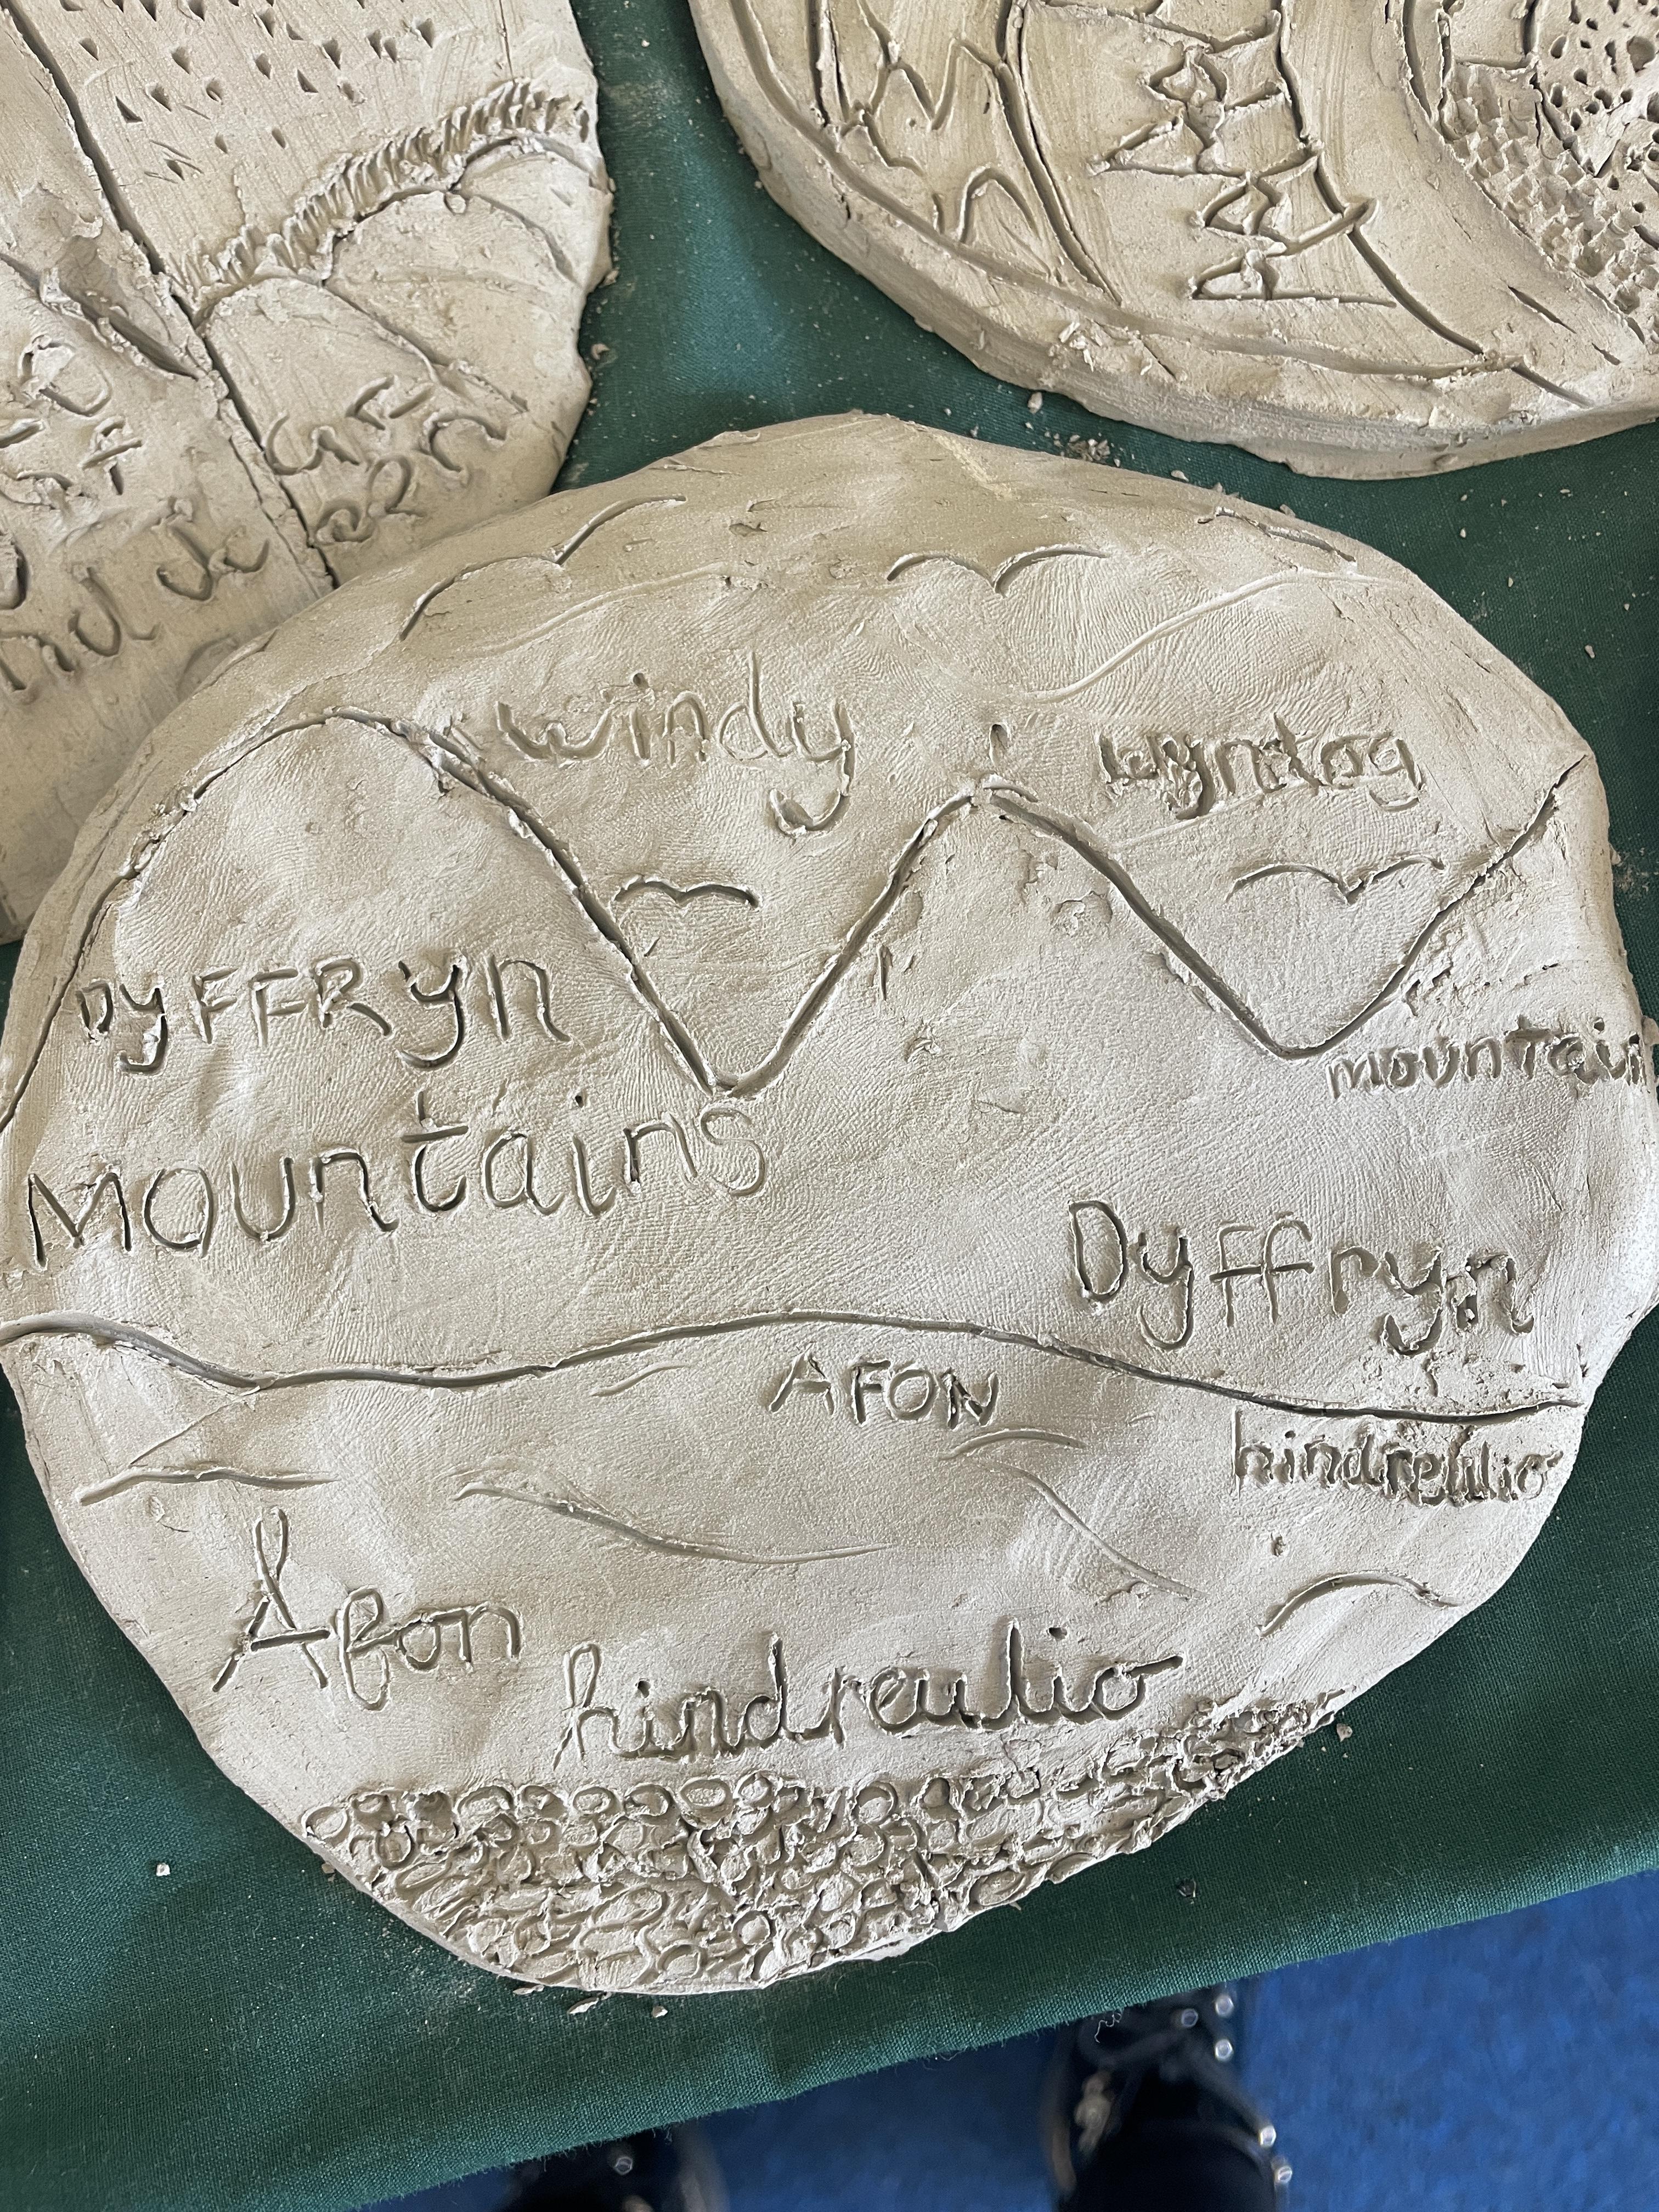 windy
wyntog
DyFFRyn
mountain
Mountains
Dyffryn
AFON
hindreulio
Afon
hindreulio